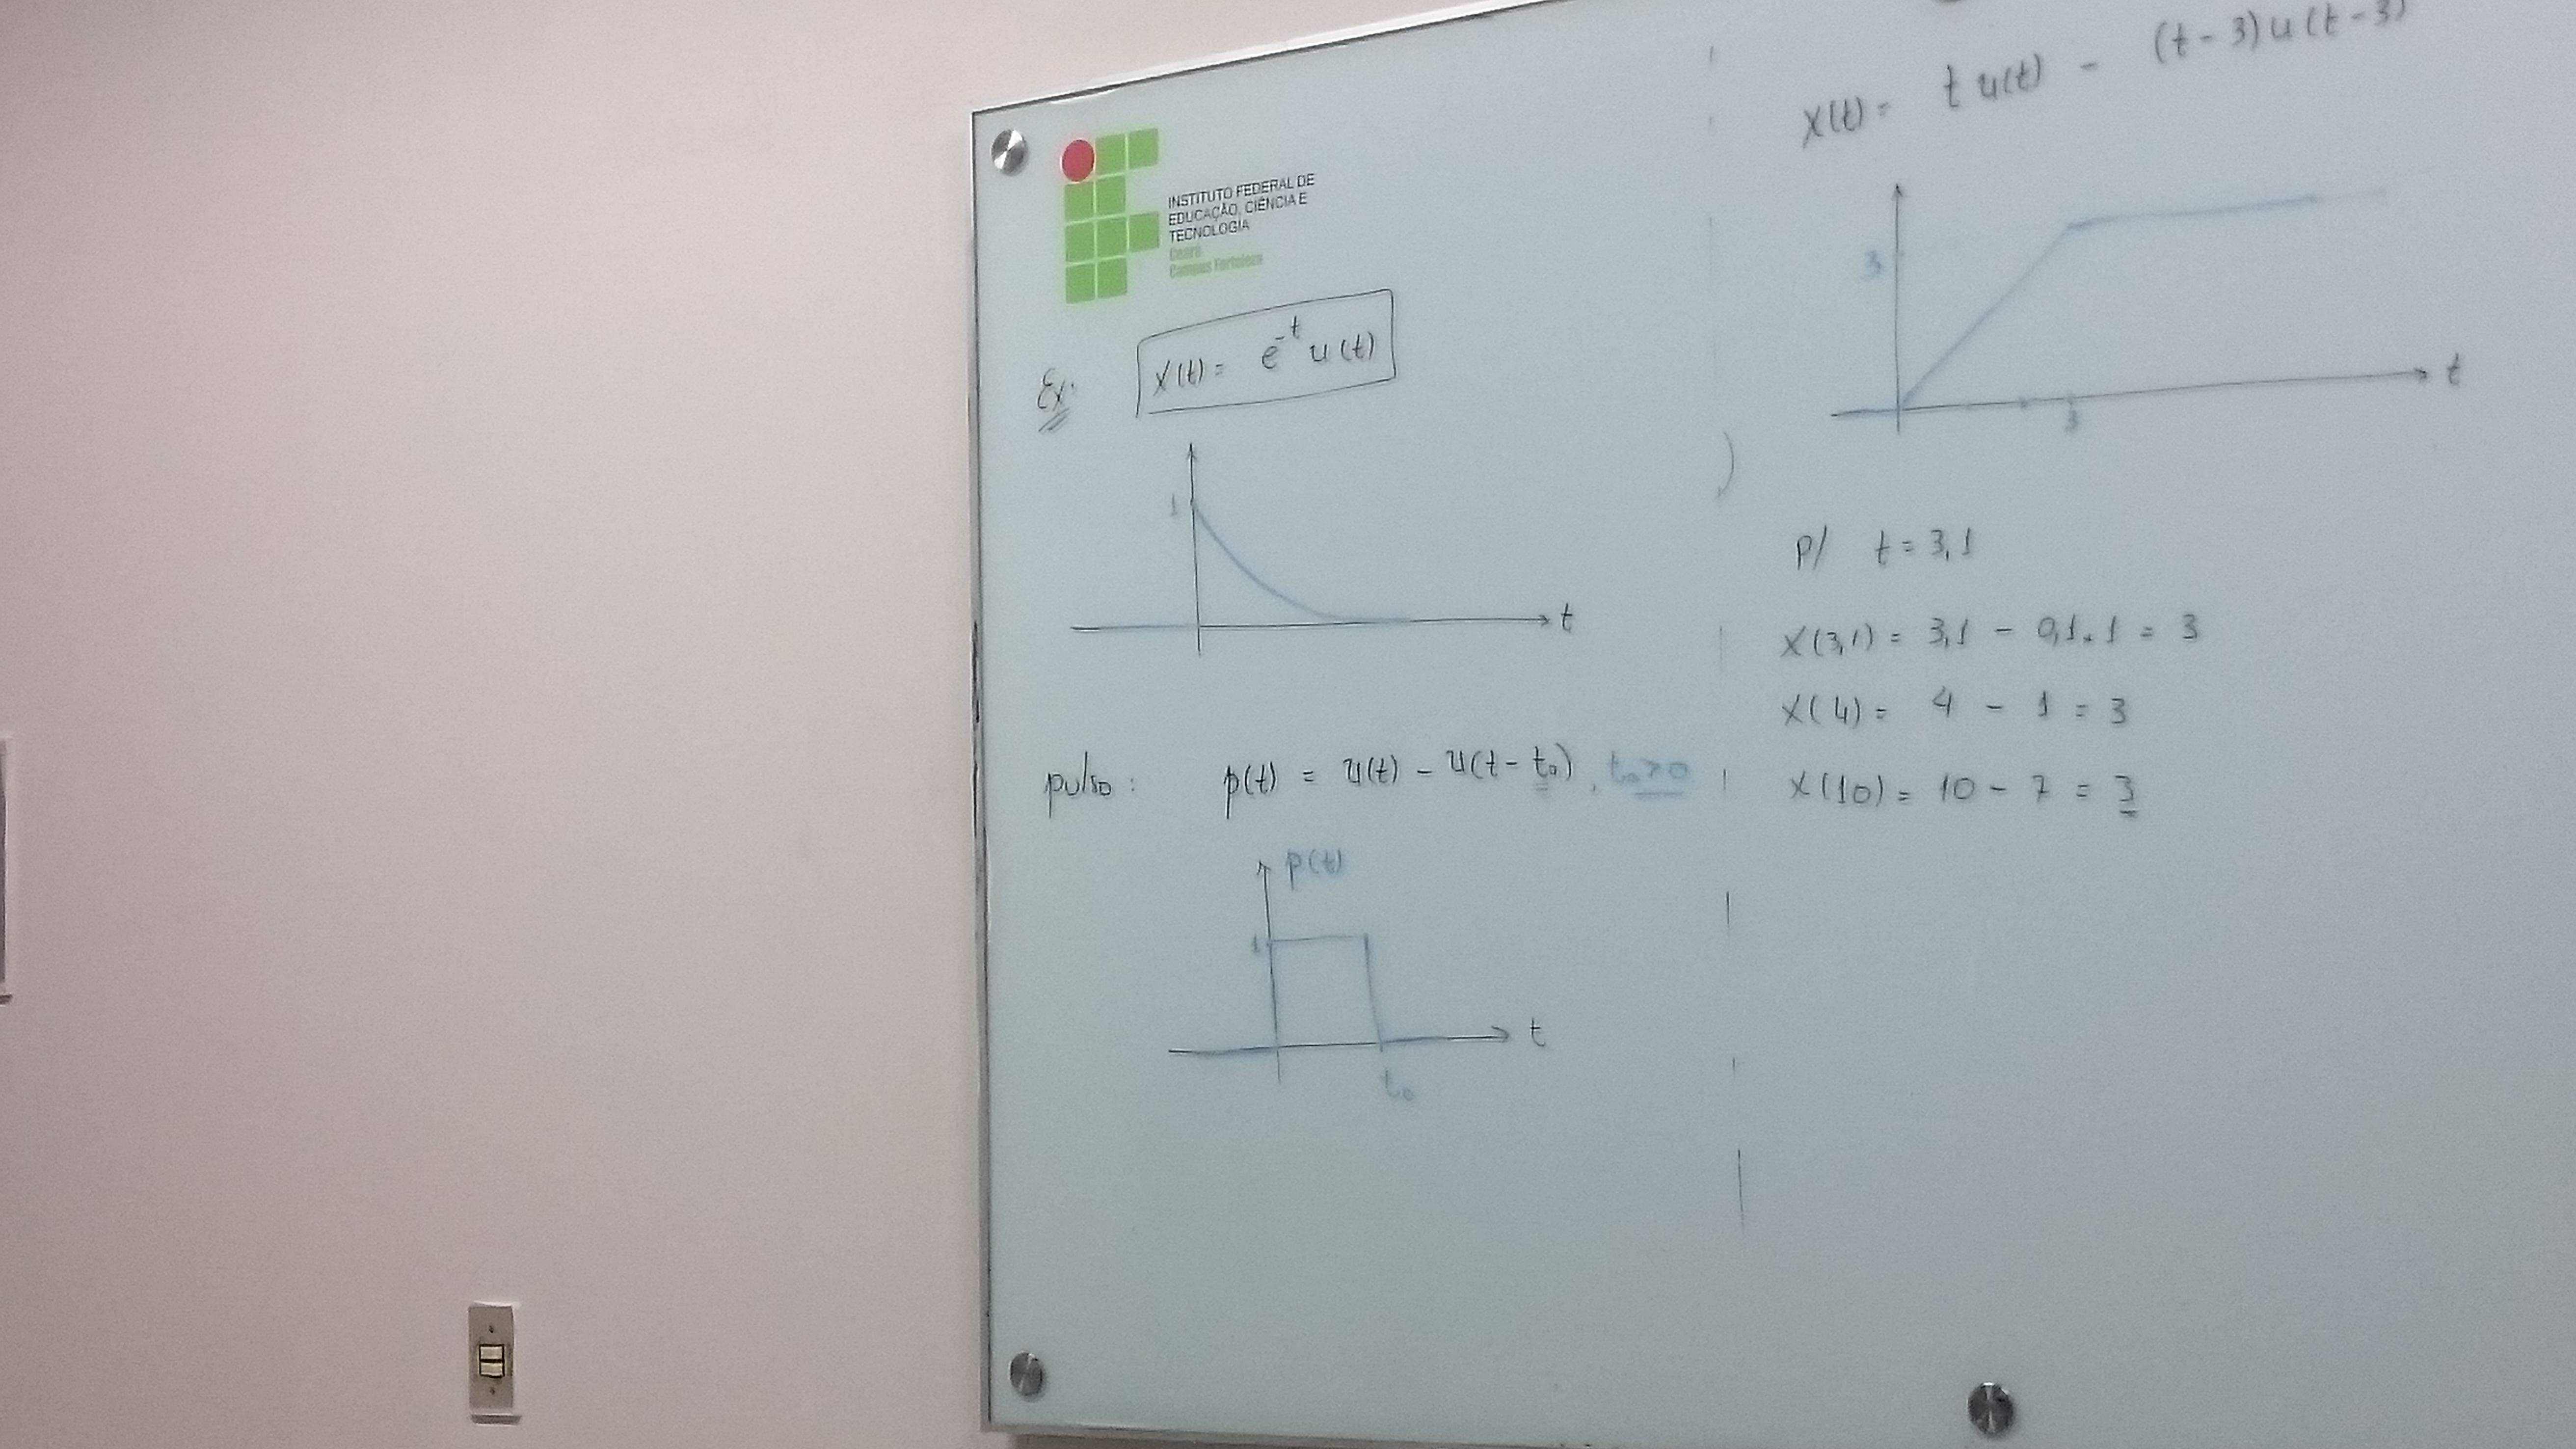 INSTITUTO FEDERAL DE
EDUCAÇÃO, CIÊNCIA E
TECNOLOGIA
Ceará
Campus Fortaleza
Ex: x(t) = e^-t u(t)
1
t
pulso: p(t) = u(t) - u(t - t₀), t₀>0
p(t)
1
t
t₀
x(t) = t u(t) - (t-3)u(t-3)
3
t
3
p/ t = 3,1
x(3,1) = 3,1 - 0,1.1 = 3
x(4) = 4 - 1 = 3
x(10) = 10 - 7 = 3